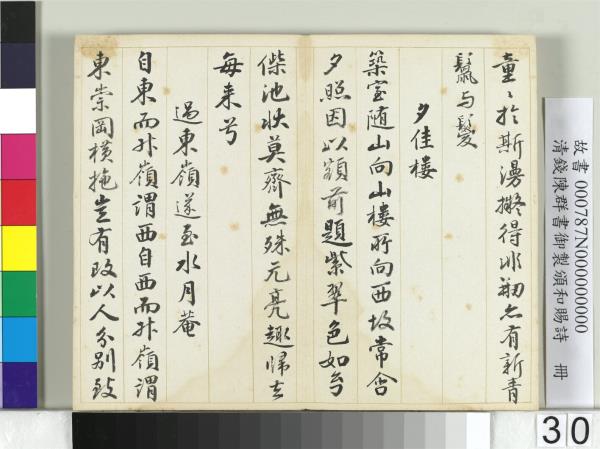 童〻於斯漫擬得非有新青
鬣与
夕佳樓
築室随山向山樓所向西故常含
夕照因以額前題紫翠色如兮
池狀莫齊無殊元亮趣歸去
每来兮
過東嶺遂至水月菴
自東而升嶺謂西自西而升嶺謂
東崇岡橫拖豈有改以人分別致
故書 000787N000000000
清錢陳群書御製頒和賜詩 冊
30